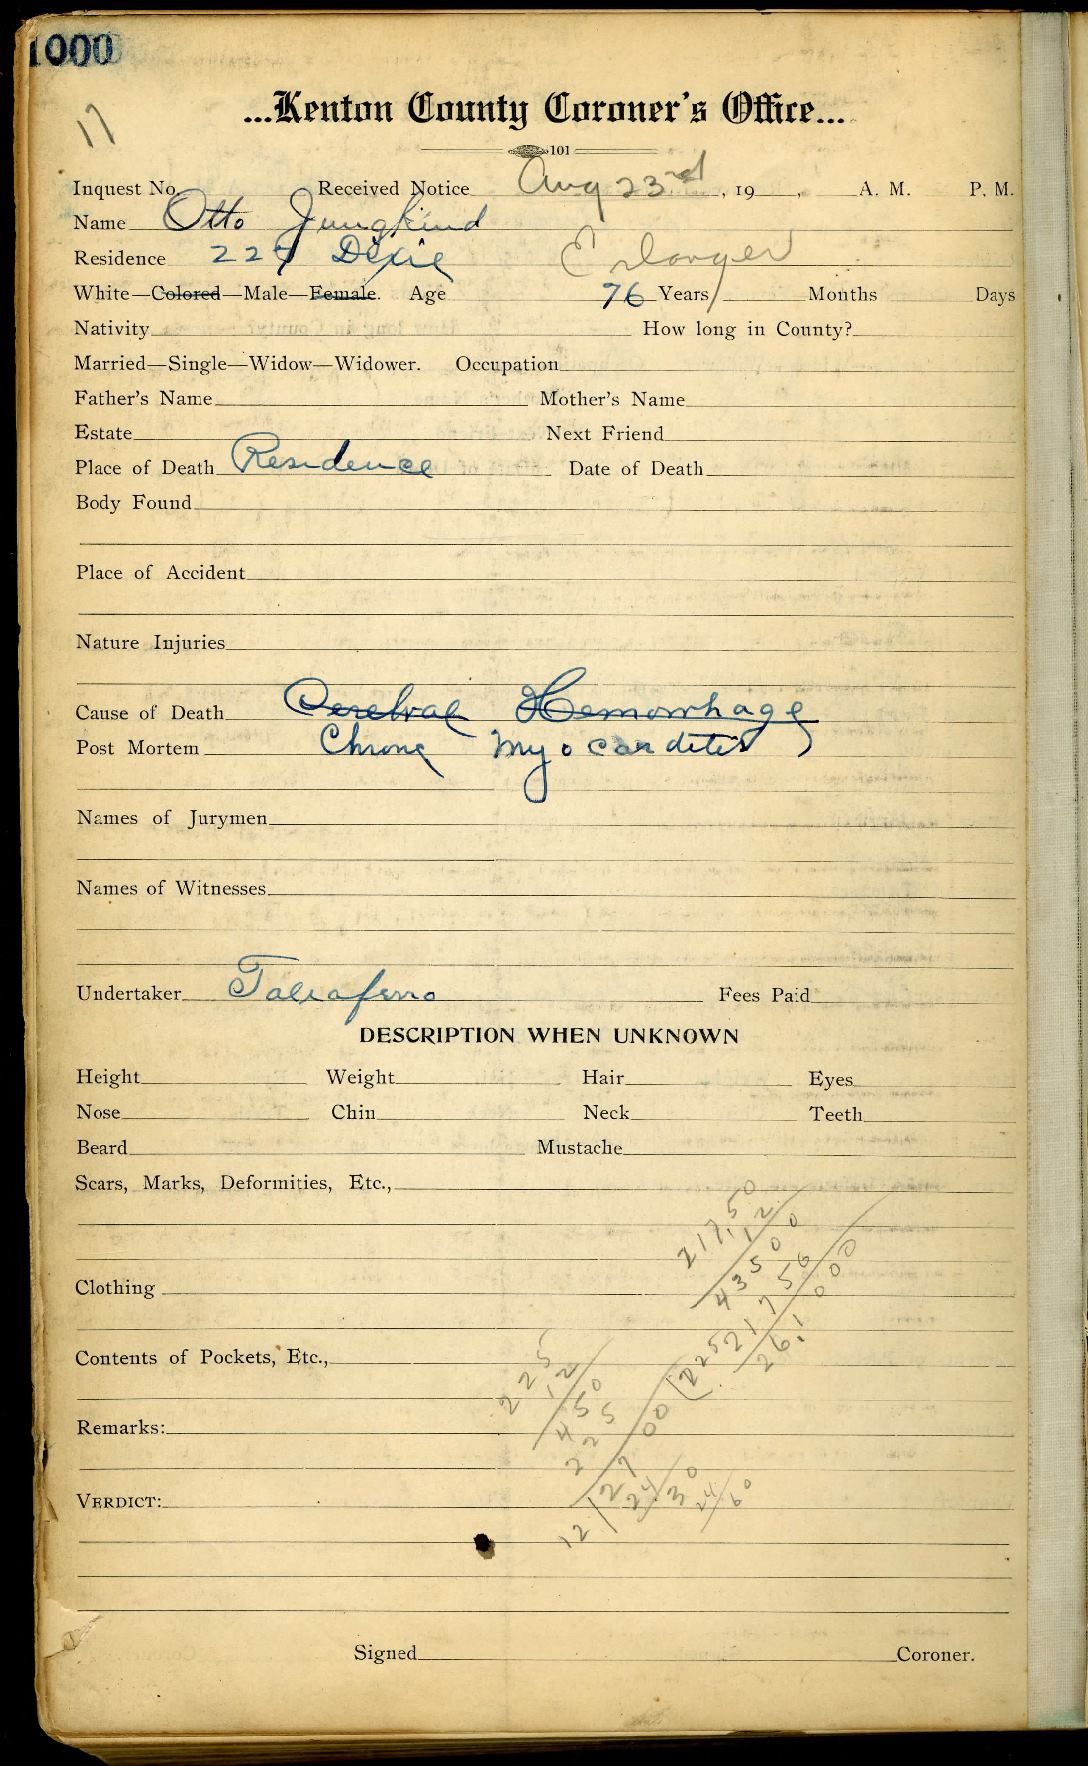 1000
17
...Kenton County Coroner's Office...
101
Inquest No. Received Notice Aug 23rd, 19 , A. M. P. M.
Name Otto Jungkind
Residence 227 Dixie Erlanger
White—Colored—Male—Female. Age 76 Years Months Days
Nativity How long in County?
Married—Single—Widow—Widower. Occupation
Father's Name Mother's Name
Estate Next Friend
Place of Death Residence Date of Death
Body Found
Place of Accident
Nature Injuries
Cause of Death Cerebral Hemorrhage
Post Mortem Chronc Myocarditis
Names of Jurymen
Names of Witnesses
Undertaker Taliaferro Fees Paid
DESCRIPTION WHEN UNKNOWN
Height Weight Hair Eyes
Nose Chin Neck Teeth
Beard Mustache
Scars, Marks, Deformities, Etc.,
217,50
12
43500
21750
261.000
Clothing
Contents of Pockets, Etc.,
225
12
450
225
2700
12 2700 (225
24
30
24
60
Remarks:
VERDICT:
Signed Coroner.